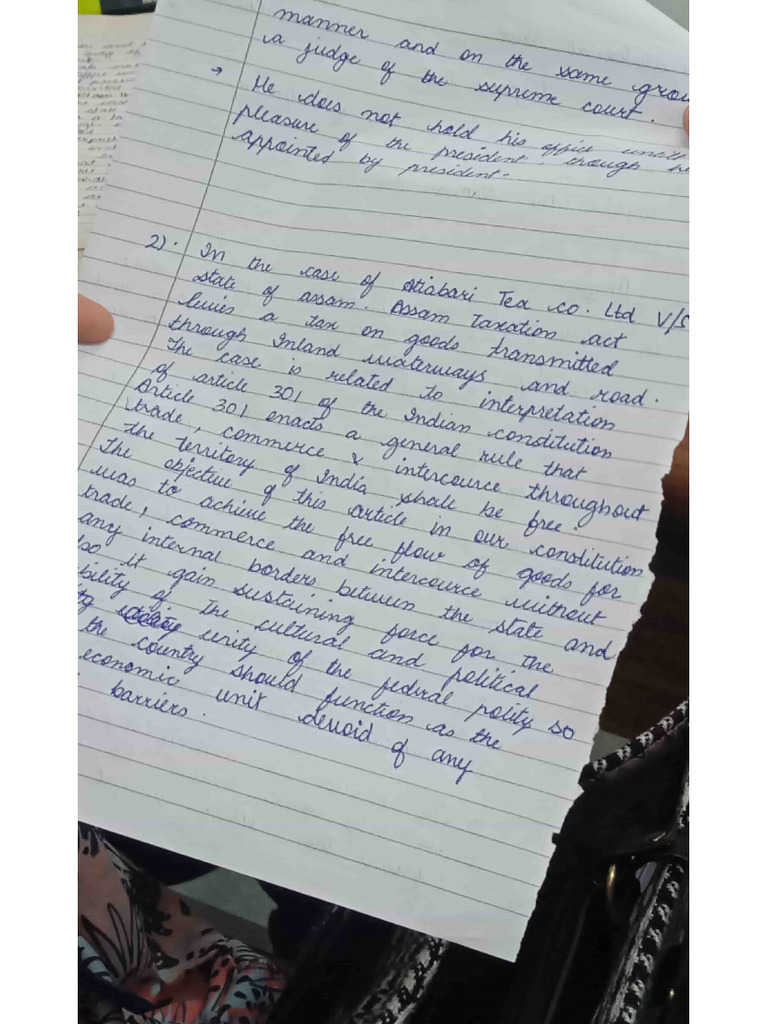 manner and on the same grou
a judge of the supreme court.
→ He does not hold his office until
pleasure of the president though he
appointed by president.
2). In the case of Atiabari Tea co. Ltd V/S
state of assam. Assam Taxation act
levies a tax on goods transmitted
through Inland waterways and road.
The case is related to interpretation
of article 301 of the Indian constitution
Article 301 enacts a general rule that
trade, commerce & intercource throughout
the territory of India shall be free.
The objective of this article in our constitution
was to achieve the free flow of goods for
trade, commerce and intercource without
any internal borders between the state and
so it gain sustaining force for the
bility of the cultural and political
unity of the federal polity so
the country should function as the
economic unit devoid of any
barriers.